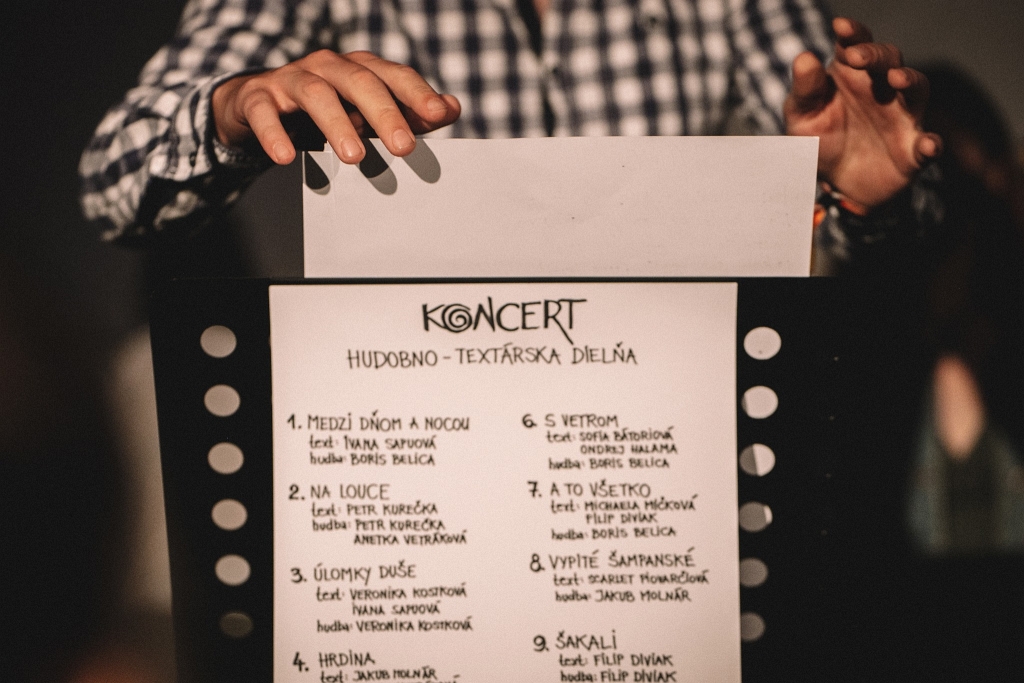 KONCERT
HUDOBNO - TEXTÁRSKA DIELŇA
1. MEDZI DŇOM A NOCOU
text: IVANA SAPUOVÁ
hudba: BORIS BELICA
2. NA LOUCE
text: PETR KUREČKA
hudba: PETR KUREČKA
ANETKA VETRÁKOVÁ
3. ÚLOMKY DUŠE
text: VERONIKA KOSTKOVÁ
IVANA SAPUOVÁ
hudba: VERONIKA KOSTKOVÁ
4. HRDINA
text: JAKUB MOLNÁR
6. S VETROM
text: SOFIA BÁTORIOVÁ
ONDREJ HALAMA
hudba: BORIS BELICA
7. A TO VŠETKO
text: MICHAELA MÍČKOVÁ
FILIP DIVIAK
hudba: BORIS BELICA
8. VYPITÉ ŠAMPANSKÉ
text: SCARLET MOVARČIOVÁ
hudba: JAKUB MOLNÁR
9. ŠAKALI
text: FILIP DIVIAK
hudba: FILIP DIVIAK